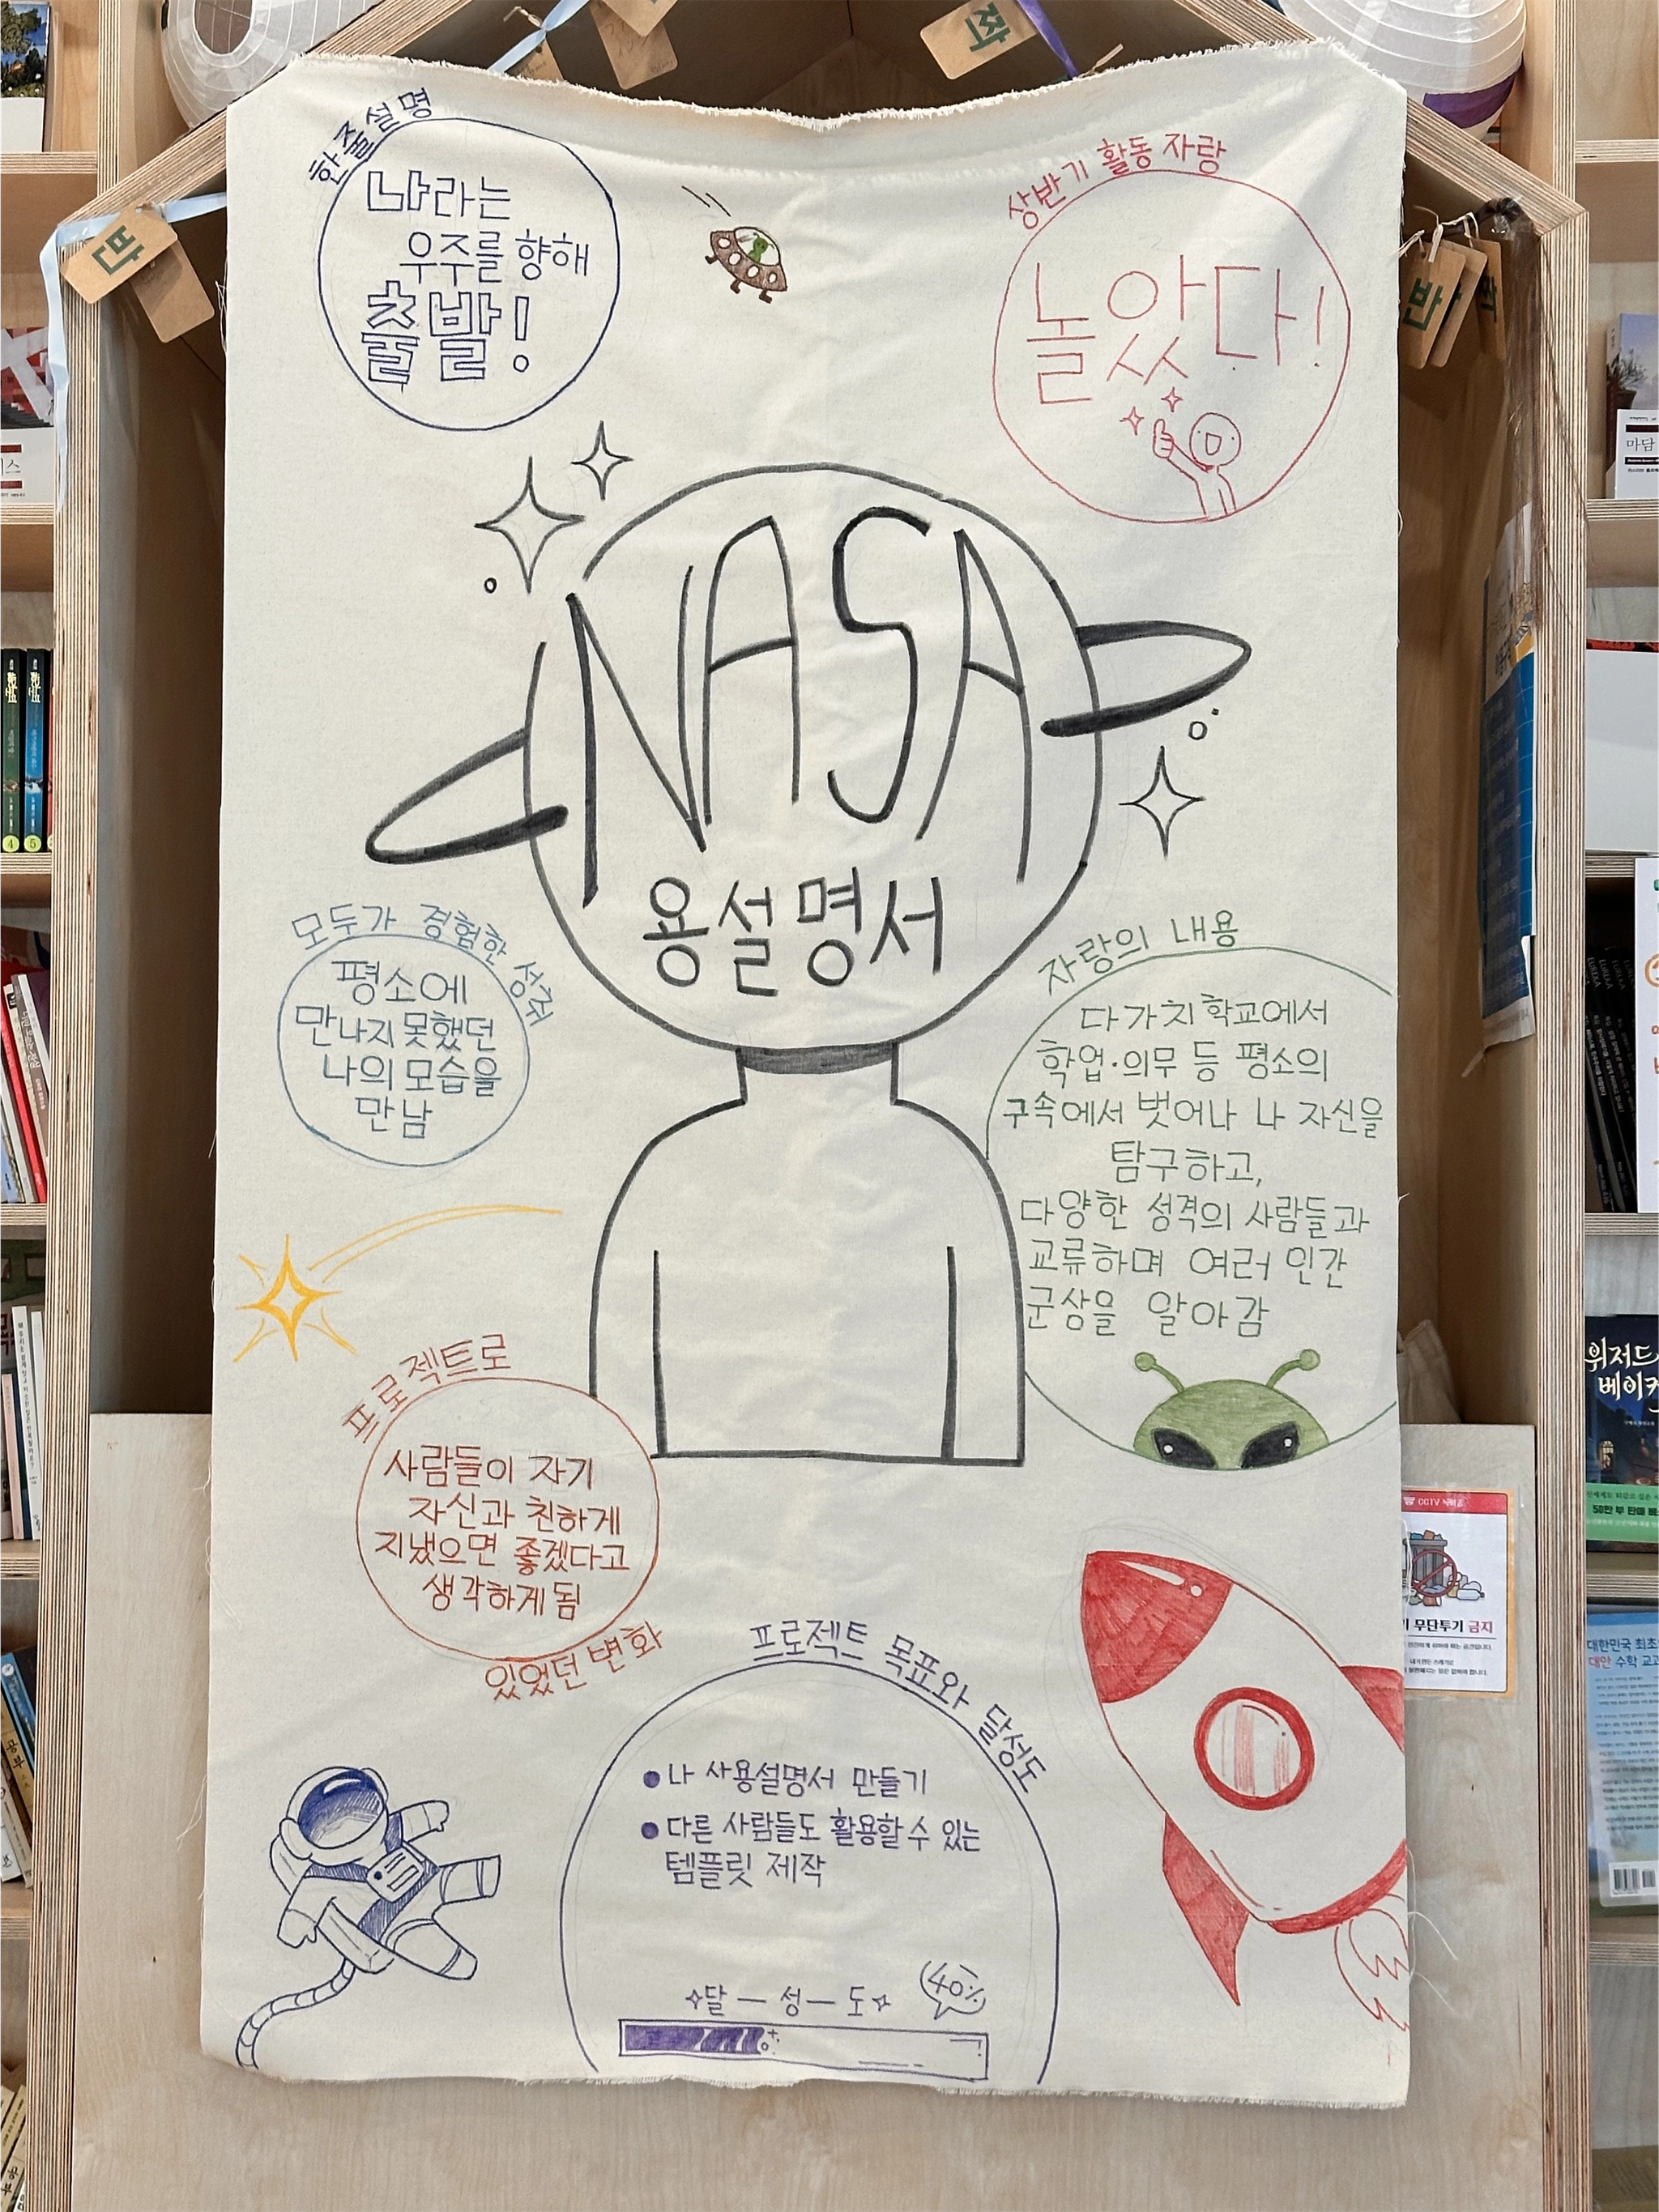 짝
반
반
한줄설명
나라는
우주를 향해
출발!
상반기 활동 자랑
놀았다!
NASA
용설명서
모두가 경험한 성취
평소에
만나지 못했던
나의 모습을
만남
자랑의 내용
다가치 학교에서
학업·의무 등 평소의
구속에서 벗어나 나 자신을
탐구하고,
다양한 성격의 사람들과
교류하며 여러 인간
군상을 알아감
프로젝트로
사람들이 자기
자신과 친하게
지냈으면 좋겠다고
생각하게 됨
있었던 변화
프로젝트 목표와 달성도
• 나 사용설명서 만들기
• 다른 사람들도 활용할 수 있는
템플릿 제작
달 — 성 — 도
40%
마담
4
5
위저드
베이커
50만 부 판매
CCTV
무단투기 금지
대한민국 최초
대안 수학 교과
공부